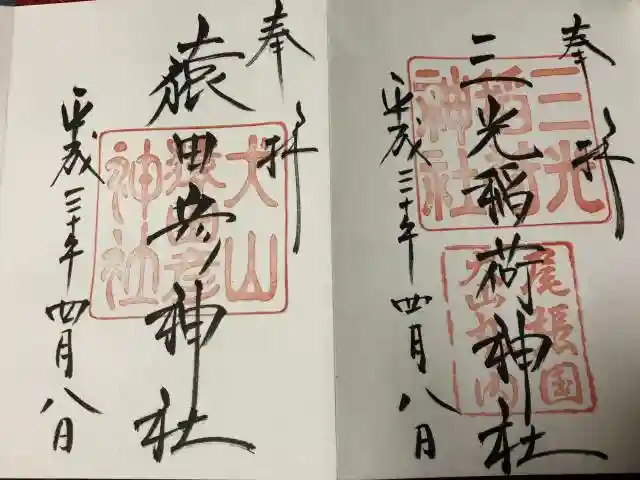 奉拝
三光稲荷神社
平成三十年四月八日
三光
稲荷
神社
尾張国
犬山城内
奉拝
猿田彦神社
平成三十年四月八日
犬山
猿田彦
神社